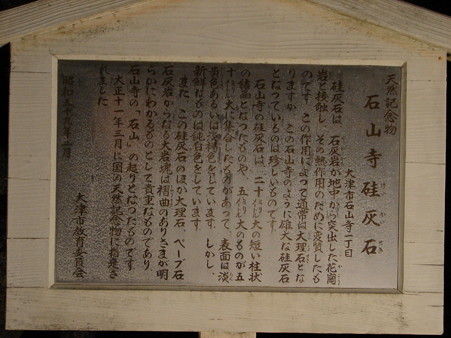 天然記念物
石山寺硅灰石
大津市石山寺一丁目
硅灰石は、石灰岩が地中から突出した花崗
岩と接触し、その熱作用のために変質したも
のです。この作用によって通常は大理石とな
りますが、この石山寺のように雄大な硅灰石
となっているのは珍しいものです。
石山寺の硅灰石は、二十ミリ大の短い柱状
の結晶となったものや、五ミリ大のものが五
十ミリ大に集合した等があって、表面は淡
黄色あるいは淡褐色をしています。しかし
新鮮なものは純白色をしています。
また、この硅灰石のほか大理石、ベーブ石
石灰岩からなる大岩塊は褶曲のありさまが明
らかにわかるものとして貴重なものであり、
石山寺の「石山」の起りとなったものです。
大正十一年三月に国の天然記念物に指定さ
れました。
昭和 年 月
大津市教育委員会